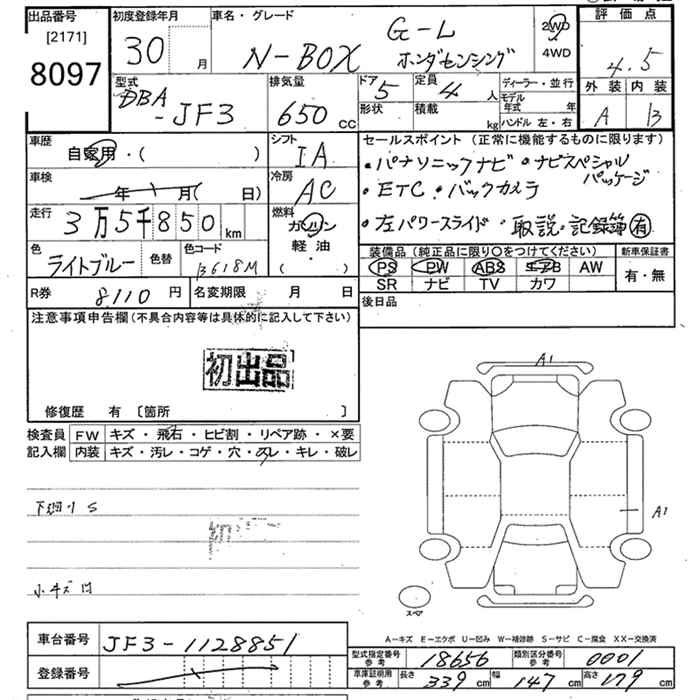 出品番号
[2171]
8097
初度登録年月
30 月
車名・グレード
N-BOX G-L
ホンダセンシング
2WD
4WD
評価点
4.5
外装 内装
A B
型式
DBA
-JF3
排気量
650 cc
ドア 5
形状
定員 4 人
積載 kg
ディーラー・並行
モデル年式 年
ハンドル 左・右
車歴
自家用・( )
シフト
IA
車検
年 月( 日)
冷房
AC
走行
3万5千850 km
燃料
ガソリン
軽油
( )
色
ライトブルー
色替
色コード
B618M
セールスポイント (正常に機能するものに限ります)
・パナソニックナビ・ナビスペシャル
パッケージ
・ETC・バックカメラ
・左パワースライド・取説・記録簿 有
装備品(純正品に限り〇をつけてください)
PS PW ABS エアB AW
SR ナビ TV カワ
新車保証書
有・無
R券 8110 円
名変期限 月 日
後日品
注意事項申告欄(不具合内容等は具体的に記入して下さい)
初出品
修復歴 有 〔箇所 〕
検査員
記入欄
FW キズ・飛石・ヒビ割・リペア跡・×要
内装 キズ・汚レ・コゲ・穴・スレ・キレ・破レ
下廻り S
小キズ凹
A1
A1
スペア
A-キズ E-エクボ U-凹み W-補修跡 S-サビ C-腐食 XX-交換済
車台番号 JF3-1128851
登録番号
型式指定番号
参考
18656
類別区分番号
参考
0001
車庫証明用
参考
長さ 339 cm 幅 147 cm 高さ 179 cm